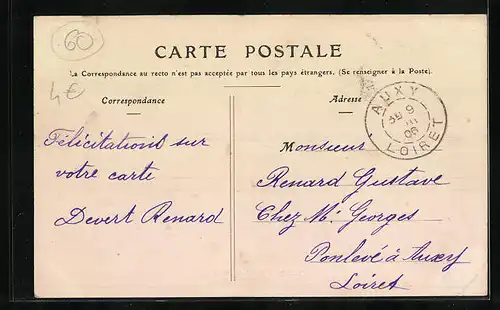 60
4€
CARTE POSTALE
La Correspondance au recto n'est pas acceptée par tous les pays étrangers. (Se renseigner à la Poste).
Correspondance
Adresse
AUXY
9
06
LOIRET
Félicitations sur
votre carte
Devert Renard
Monsieur
Renard Gustave
Chez Mr Georges
Ponlevé à Auxy
Loiret